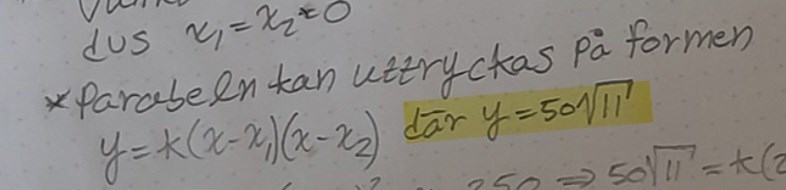 dvs x₁=x₂=0
*Parabeln kan uttryckas på formen
y=k(x-x₁)(x-x₂) där y=50√11
250 ⇒ 50√11 = k(2